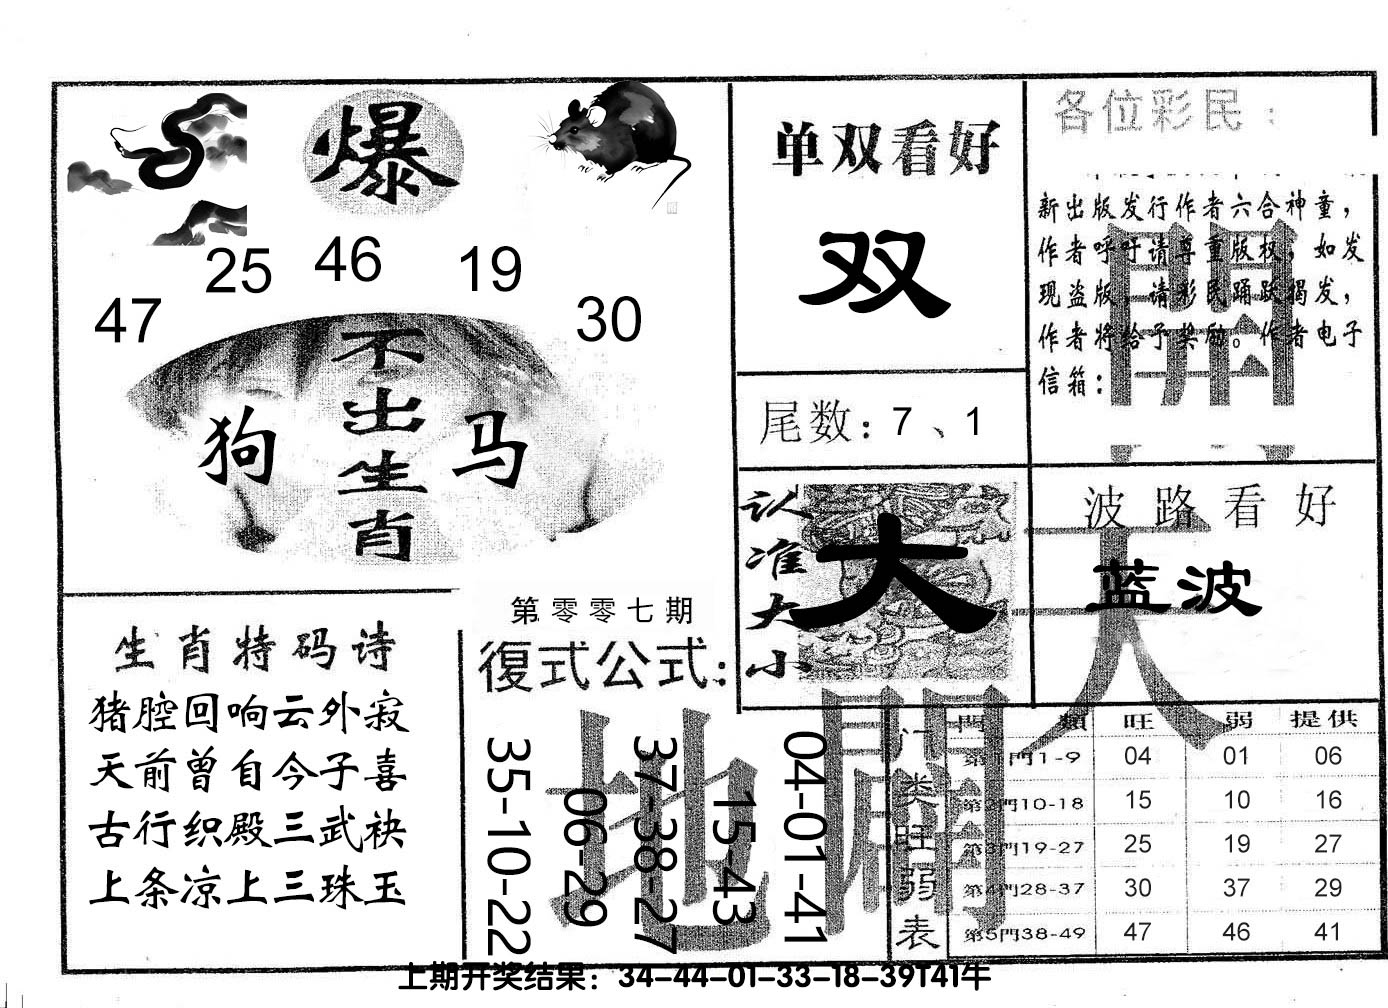 爆
47
25
46
19
30
不出生肖
狗
马
单双看好
双
各位彩民：
新出版发行作者六合神童，
作者呼吁请尊重版权，如发
现盗版，请彩民踊跃揭发，
作者将给予奖励。作者电子
信箱：
開
尾数：7、1
认准大小
大
波路看好
蓝波
天
生肖特码诗
猪腔回响云外寂
天前曾自今子喜
古行织殿三武袂
上条凉上三珠玉
第零零七期
復式公式：
35-10-22
06-29
37-38-27
15-43
04-01-41
地
開
门类旺弱表
門類 旺 弱 提供
第1門1-9 04 01 06
第2門10-18 15 10 16
第3門19-27 25 19 27
第4門28-37 30 37 29
第5門38-49 47 46 41
上期开奖结果：34-44-01-33-18-39T41牛